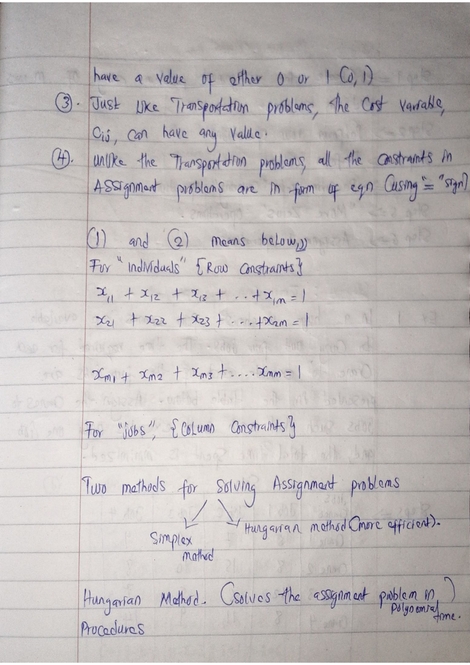 have a value of either 0 or 1 (0,1)
③. Just like Transportation problems, The Cost Variable,
Cij, can have any value.
④. unlike the Transportation problems, all the constraints in
Assignment problems are in form of eqn (using "=" sign)
(1) and (2) means below,,
For "individuals" {Row Constraints}
x₁₁ + x₁₂ + x₁₃ + ... + x₁m = 1
x₂₁ + x₂₂ + x₂₃ + .... + x₂m = 1
xm₁ + xm₂ + xm₃ + .... xmm = 1
For "jobs", {Column Constraints}
Two methods for Solving Assignment problems
Simplex method
Hungarian method (more efficient).
Hungarian Method. (solves the assignment problem in polynomial time.)
Procedures